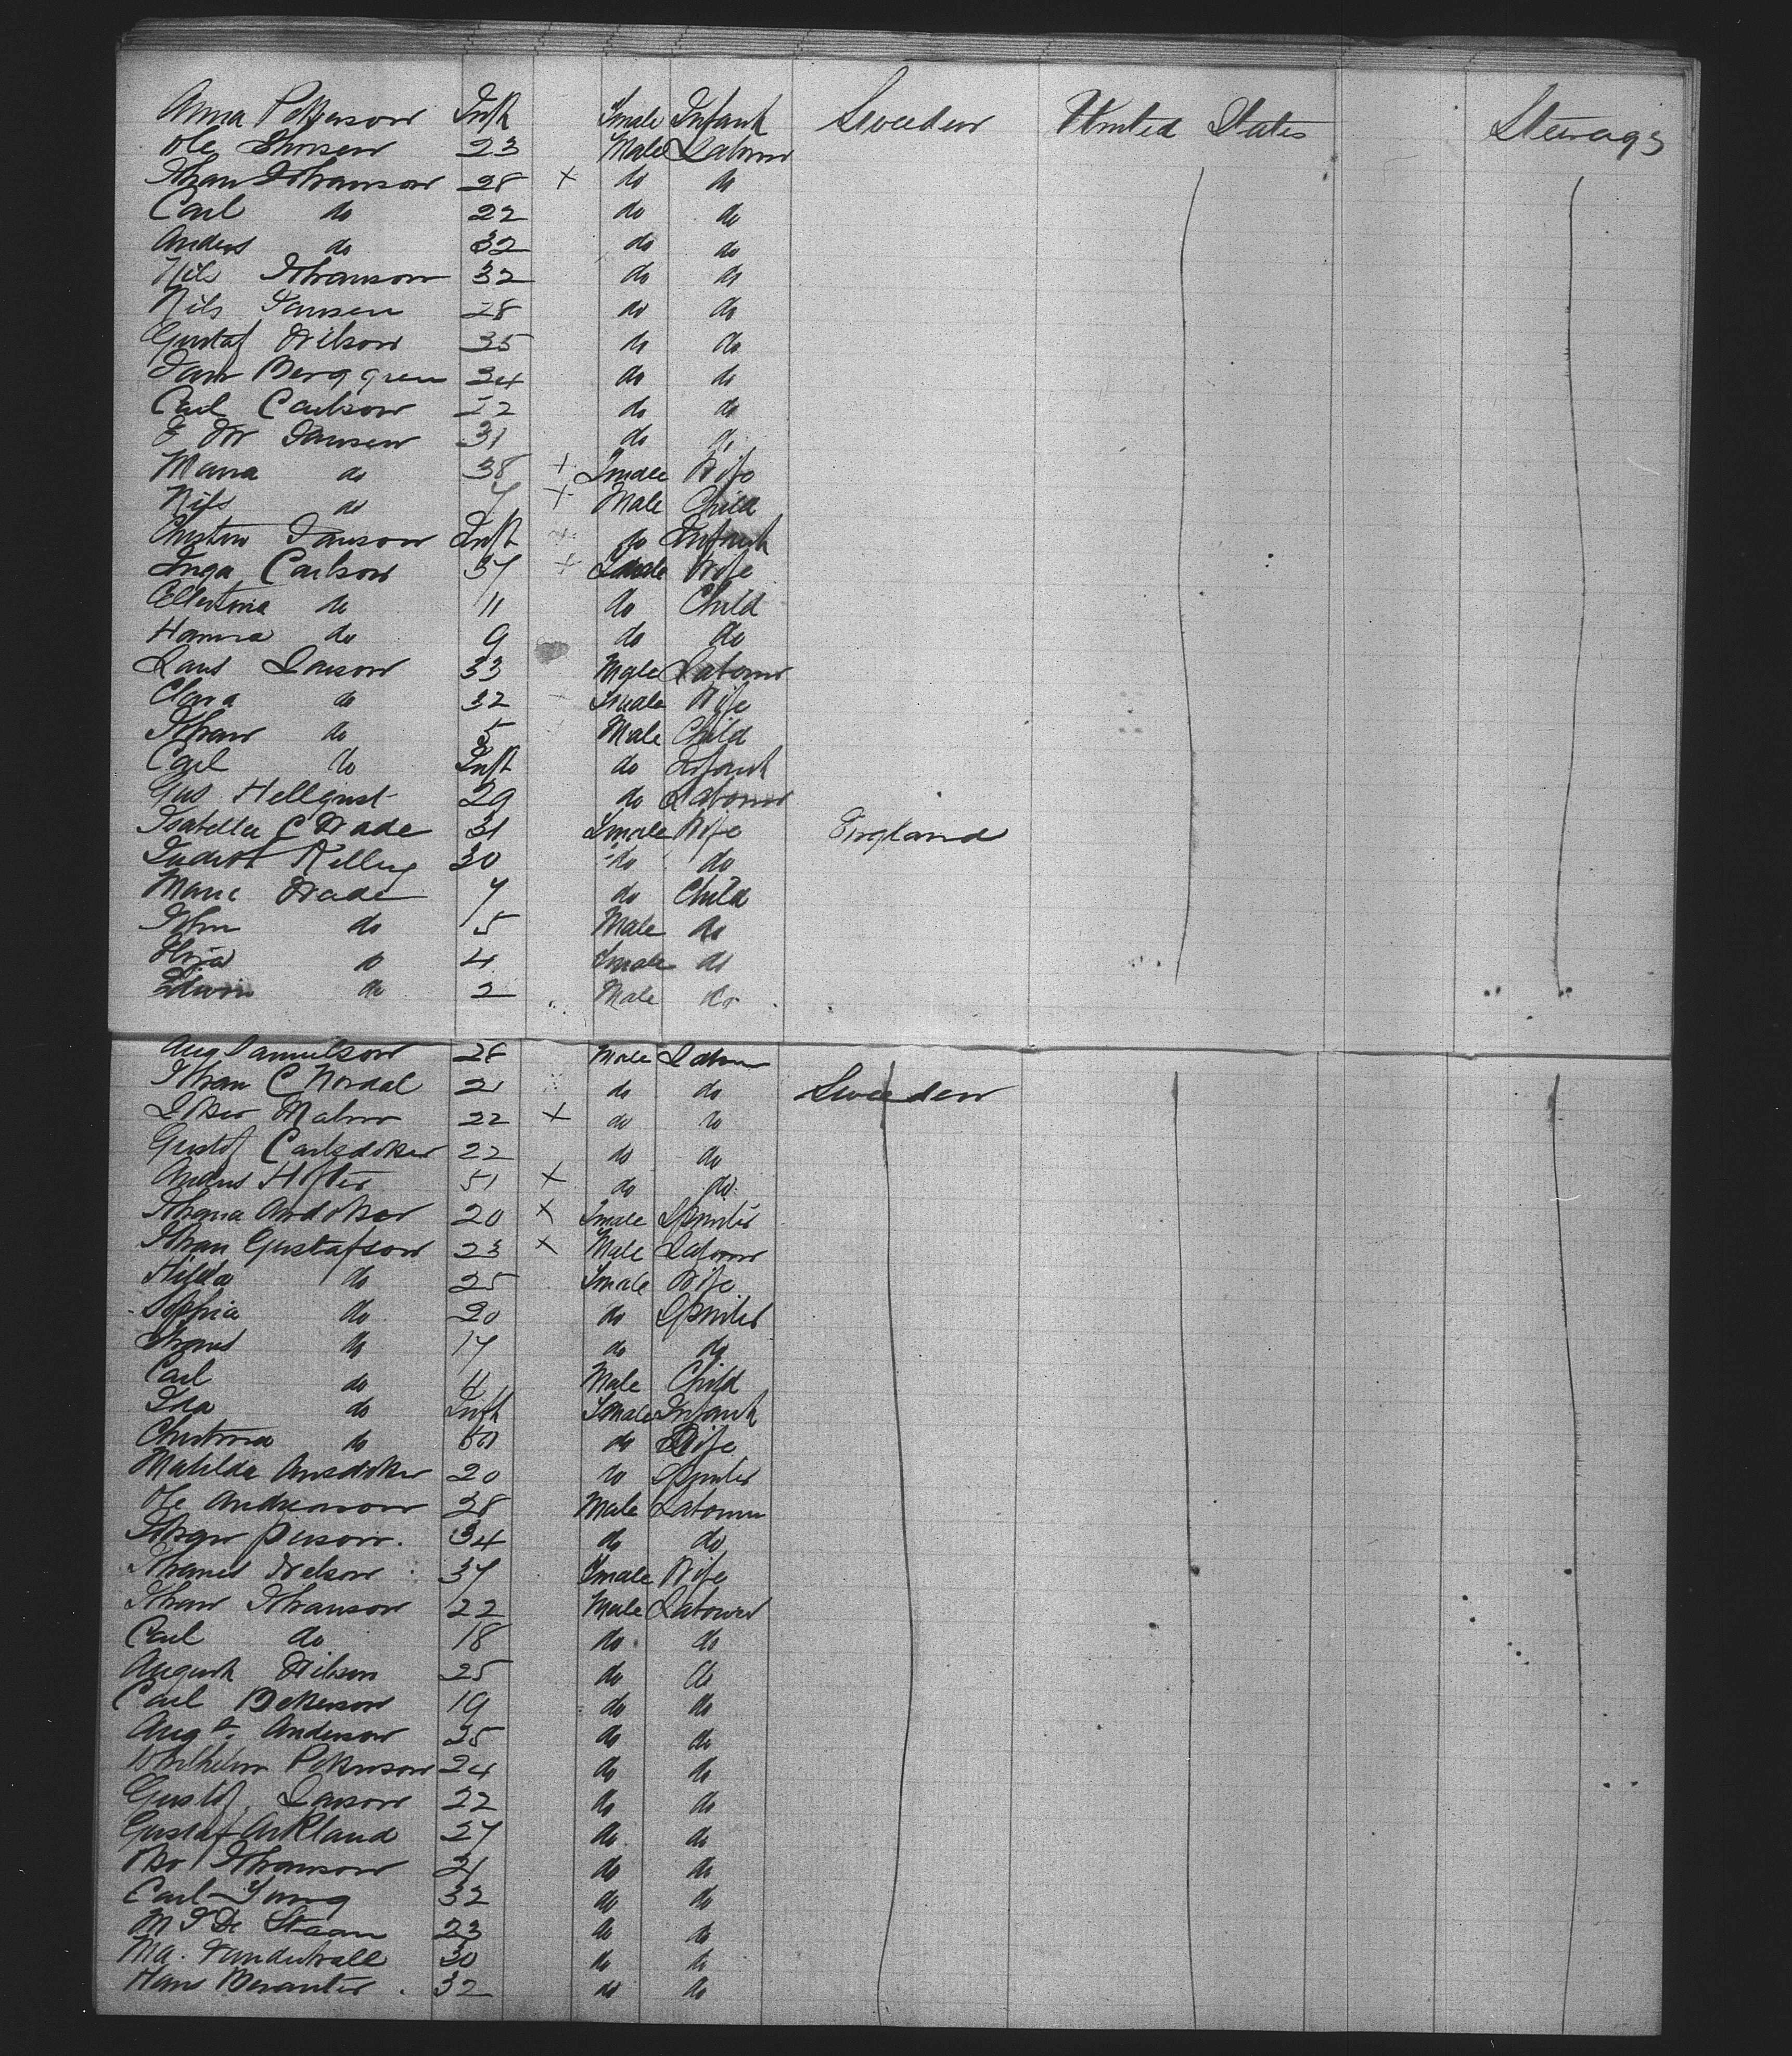 Anna Peterson Inft Female Infant Sweden United States Steerage
Ole Thorsen 23 Male Labourer
Johan Johanson 28 + do do
Carl do 22 do do
Anders do 32 do do
Nils Johanson 32 do do
Nils Jansen 28 do do
Gustaf Wilson 35 do do
Berggren 34 do do
Carl Carlson 22 do do
Jansen 31 do do
Maria do 38 + Female Wife
Nils do 7 + Male Child
Janson Inft + do Infant
Inga Carlson 37 + Female Wife
do 11 do Child
Hanna do 9 do do
Lars Larson 33 Male Labourer
Clara do 32 Female Wife
Johan do 5 Male Child
Carl do Inft do Infant
Gus Hellqust 29 do Labourer
Isabella C Wade 31 Female Wife England
Kelley 30 do do
Marie Wade 7 do Child
John do 5 Male do
do 4 Female do
Edwin do 2 Male do
Aug Samuelson 28 Male Labourer
Johan C Nordal 21 do do Sweden
Malm 22 + do do
Gustof 22 do do
51 + do do
20 + Female Spinster
Johan Gustafson 23 + Male Labourer
Hilda do 25 Female Wife
Sophia do 20 do Spinster
do 17 do do
Carl do 4 Male Child
Ida do Inft Female Infant
Christina do do Wife
Matilda 20 do Spinster
Ole Andreason 28 Male Labourer
Johan Person 34 do do
Nelson 37 Female Wife
Johan Johanson 22 Male Labourer
Carl do 18 do do
August Wilson 25 do do
Carl Peterson 19 do do
Augt. Anderson 25 do do
Wilhelm Peterson 24 do do
Gustof Larson 22 do do
Gustaf Arkland 27 do do
Johanson 21 do do
Carl Jung 32 do do
23 do do
Ma. Vanderwall 30 do do
Hans 32 do do